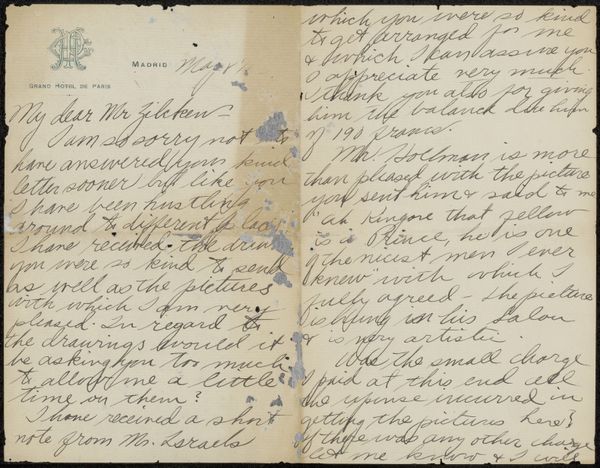 GHP
MADRID May 8th
GRAND HOTEL DE PARIS
My dear Mr Zilcken –
I am so sorry not to
have answered your kind
letter sooner but like you
I have been hustling
around to different places
I have received the drawings
you were so kind to send
as well as the pictures
with which I am very
pleased. In regard to
the drawings would it
be asking you too much
to allow me a little
time on them?
I have received a short
note from Mr. Israels
which you were so kind
to get arranged for me
& which I can assure you
I appreciate very much
I thank you also for giving
him the balance due him
of 190 francs.
Mr. Hollman is more
than pleased with the picture
you sent him & said to me
"ah Kingore that fellow
is a Prince, he is one
of the nicest men I ever
knew" with which I
fully agreed – The picture
is hung in his Salon
& is very artistic.
Was the small charge
I paid at this end all
the expense incurred in
getting the pictures here?
If there was any other charge
let me know & I will